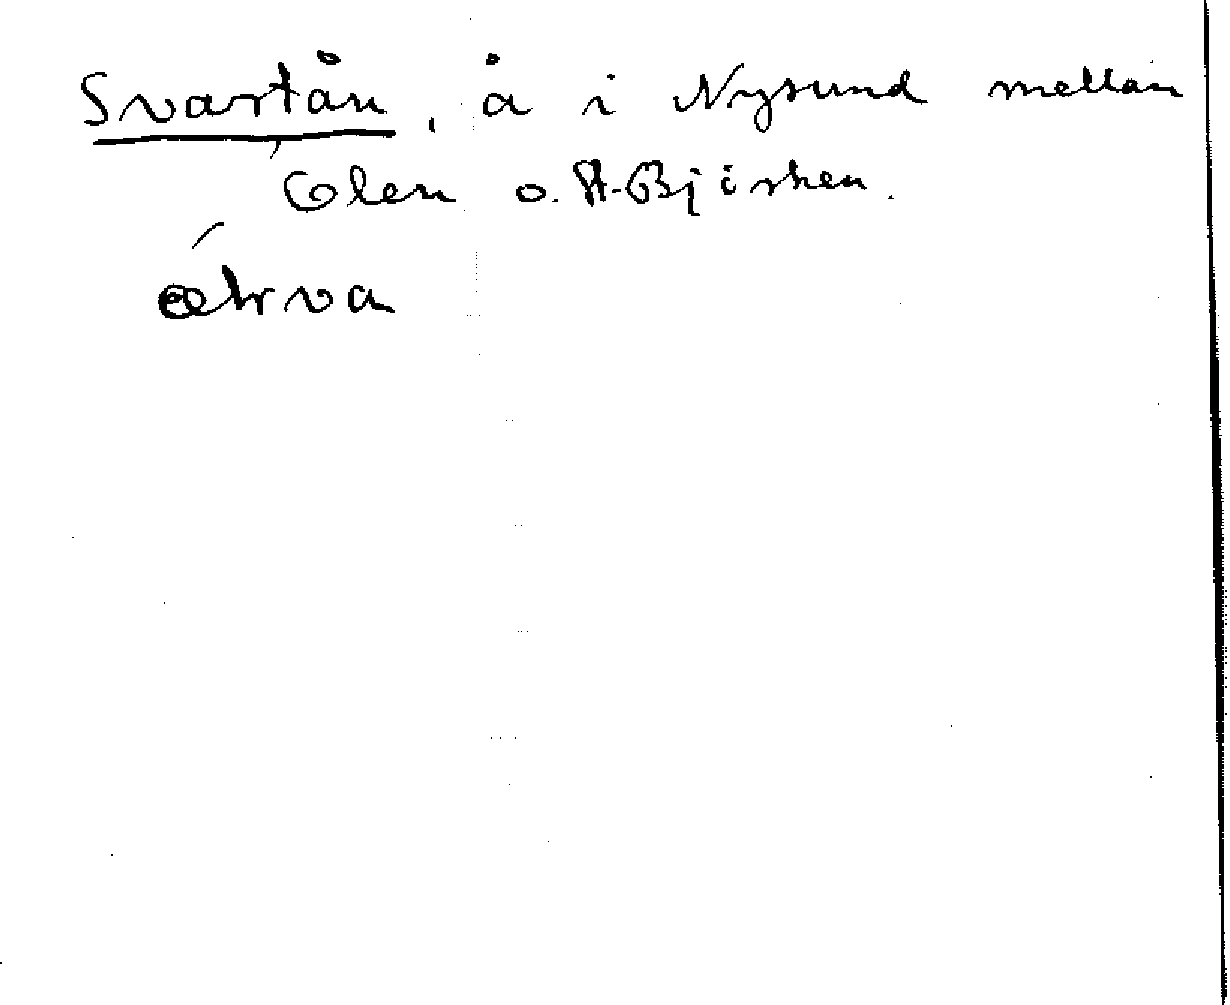 Svartån, å i Nysund mellan
Ölen o. St. Björken.